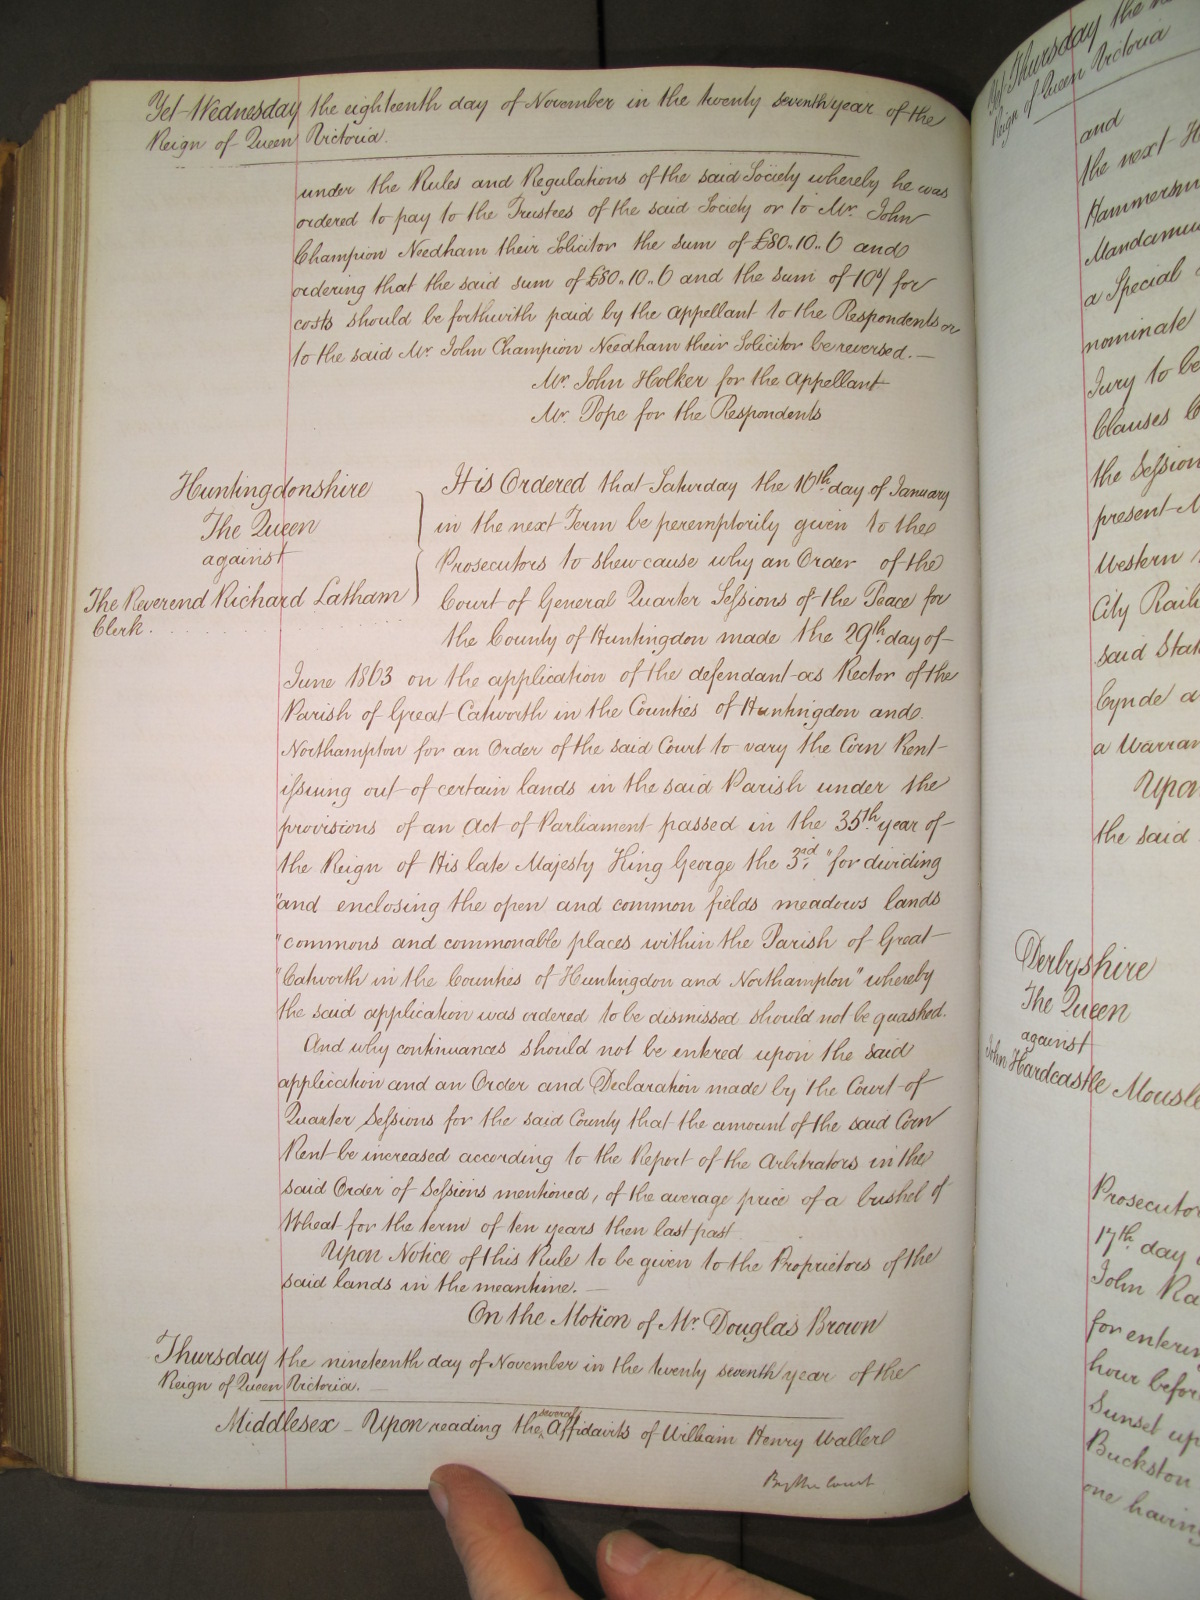 Yet Wednesday the eighteenth day of November in the twenty seventh year of the
Reign of Queen Victoria.
under the Rules and Regulations of the said Society whereby he was
ordered to pay to the Trustees of the said Society or to Mr. John
Champion Needham their Solicitor the sum of £80..10..6 and
ordering that the said sum of £80..10..6 and the sum of 10s/ for
costs should be forthwith paid by the appellant to the Respondents or
to the said Mr. John Champion Needham their Solicitor be reversed. —
Mr. John Holker for the Appellant
Mr. Pope for the Respondents
Huntingdonshire
The Queen
against
The Reverend Richard Latham
Clerk.
It is Ordered that Saturday the 16th day of January
in the next Term be peremptorily given to the
Prosecutors to shew cause why an Order of the
Court of General Quarter Sessions of the Peace for
the County of Huntingdon made the 29th day of
June 1863 on the application of the defendant as Rector of the
Parish of Great Catworth in the Counties of Huntingdon and
Northampton for an Order of the said Court to vary the Corn Rent
issuing out of certain lands in the said Parish under the
provisions of an Act of Parliament passed in the 35th year of
the Reign of His late Majesty King George the 3rd "for dividing
"and enclosing the open and common fields meadows lands
"commons and commonable places within the Parish of Great
"Catworth in the Counties of Huntingdon and Northampton" whereby
the said application was ordered to be dismissed should not be quashed.
And why continuances should not be entered upon the said
application and an Order and Declaration made by the Court of
Quarter Sessions for the said County that the amount of the said Corn
Rent be increased according to the Report of the Arbitrators in the
said Order of Sessions mentioned, of the average price of a bushel of
Wheat for the term of ten years then last past
Upon Notice of this Rule to be given to the Proprietors of the
said lands in the meantime. —
On the Motion of Mr. Douglas Brown
Thursday the nineteenth day of November in the twenty seventh year of the
Reign of Queen Victoria. —
Middlesex – Upon reading the several Affidavits of William Henry Waller
By the Court
Thursday the
Reign of Queen Victoria
and
the next
Mandamus
a Special
nominate
Jury to be
Clauses
the Session
present
Western
City
said
Cynde
a Warran
Upon
the said
Derbyshire
The Queen
against
John Hardcastle
Prosecutor
17th day
John
for entering
hour before
Sunset
Buckston
one having